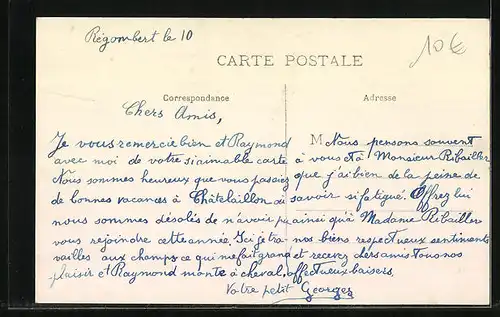 Régombert le 10
10€
CARTE POSTALE
Correspondance
Adresse
Chers Amis,
Je vous remercie bien et Raymond
avec moi de votre si aimable carte
Nous sommes heureux que vous passiez
de bonnes vacances à Châtelaillon où
nous sommes désolés de n'avoir pu
vous rejoindre cette année. Ici je tra-
vailles aux champs ce qui me fait grand
plaisir et Raymond monte à cheval,
M
Nous pensons souvent
à vous et à Monsieur Ribailler
que j'ai bien de la peine de
savoir si fatigué. Offrez lui
ainsi qu'à Madame Ribailler
nos biens respectueux sentiments
et recevez chers amis tous nos
affectueux baisers.
Votre petit Georges